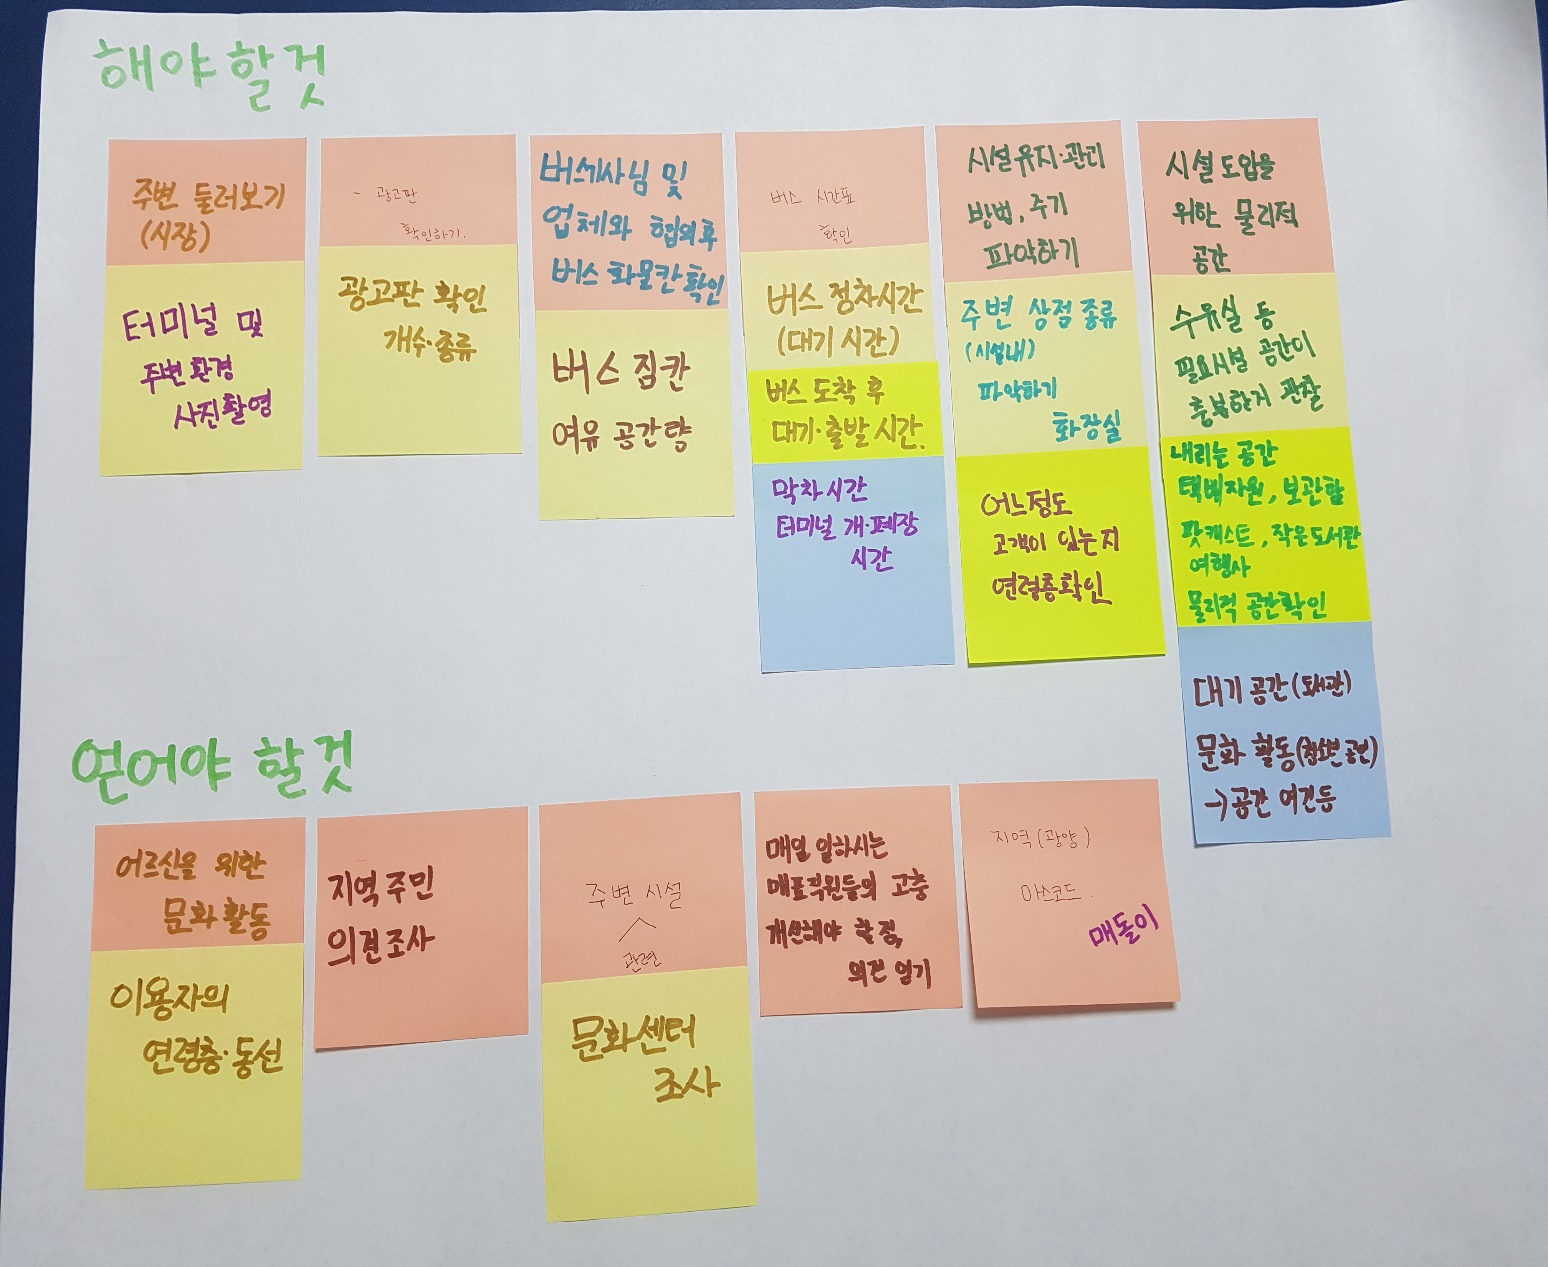 해야 할것
주변 둘러보기
(시장)
터미널 및
주변환경
사진촬영
- 광고판
확인하기.
광고판 확인
개수·종류
버스기사님 및
업체와 협의후
버스 화물칸 확인
버스 짐칸
여유 공간량
버스 시간표
확인
버스 정차시간
(대기 시간)
버스 도착 후
대기·출발 시간.
막차시간
터미널 개·폐장
시간
시설유지·관리
방법, 주기
파악하기
주변 상점 종류
(시설내)
파악하기
화장실
어느정도
고객이 있는지
연령층확인
시설도입을
위한 물리적
공간
수유실 등
필요시설 공간이
충분한지 관찰
내리는 공간
택배자원, 보관함
팟캐스트, 작은도서관
여행사
물리적 공간확인
대기 공간(도서관)
문화 활동(청소년 공연)
→공간 여건등
얻어야 할것
어르신을 위한
문화활동
이용자의
연령층·동선
지역주민
의견조사
주변 시설
관련
문화센터
조사
매일 일하시는
매표직원들의 고충
개선해야 할 점,
의견 얻기
지역(광양)
마스코드.
매돌이